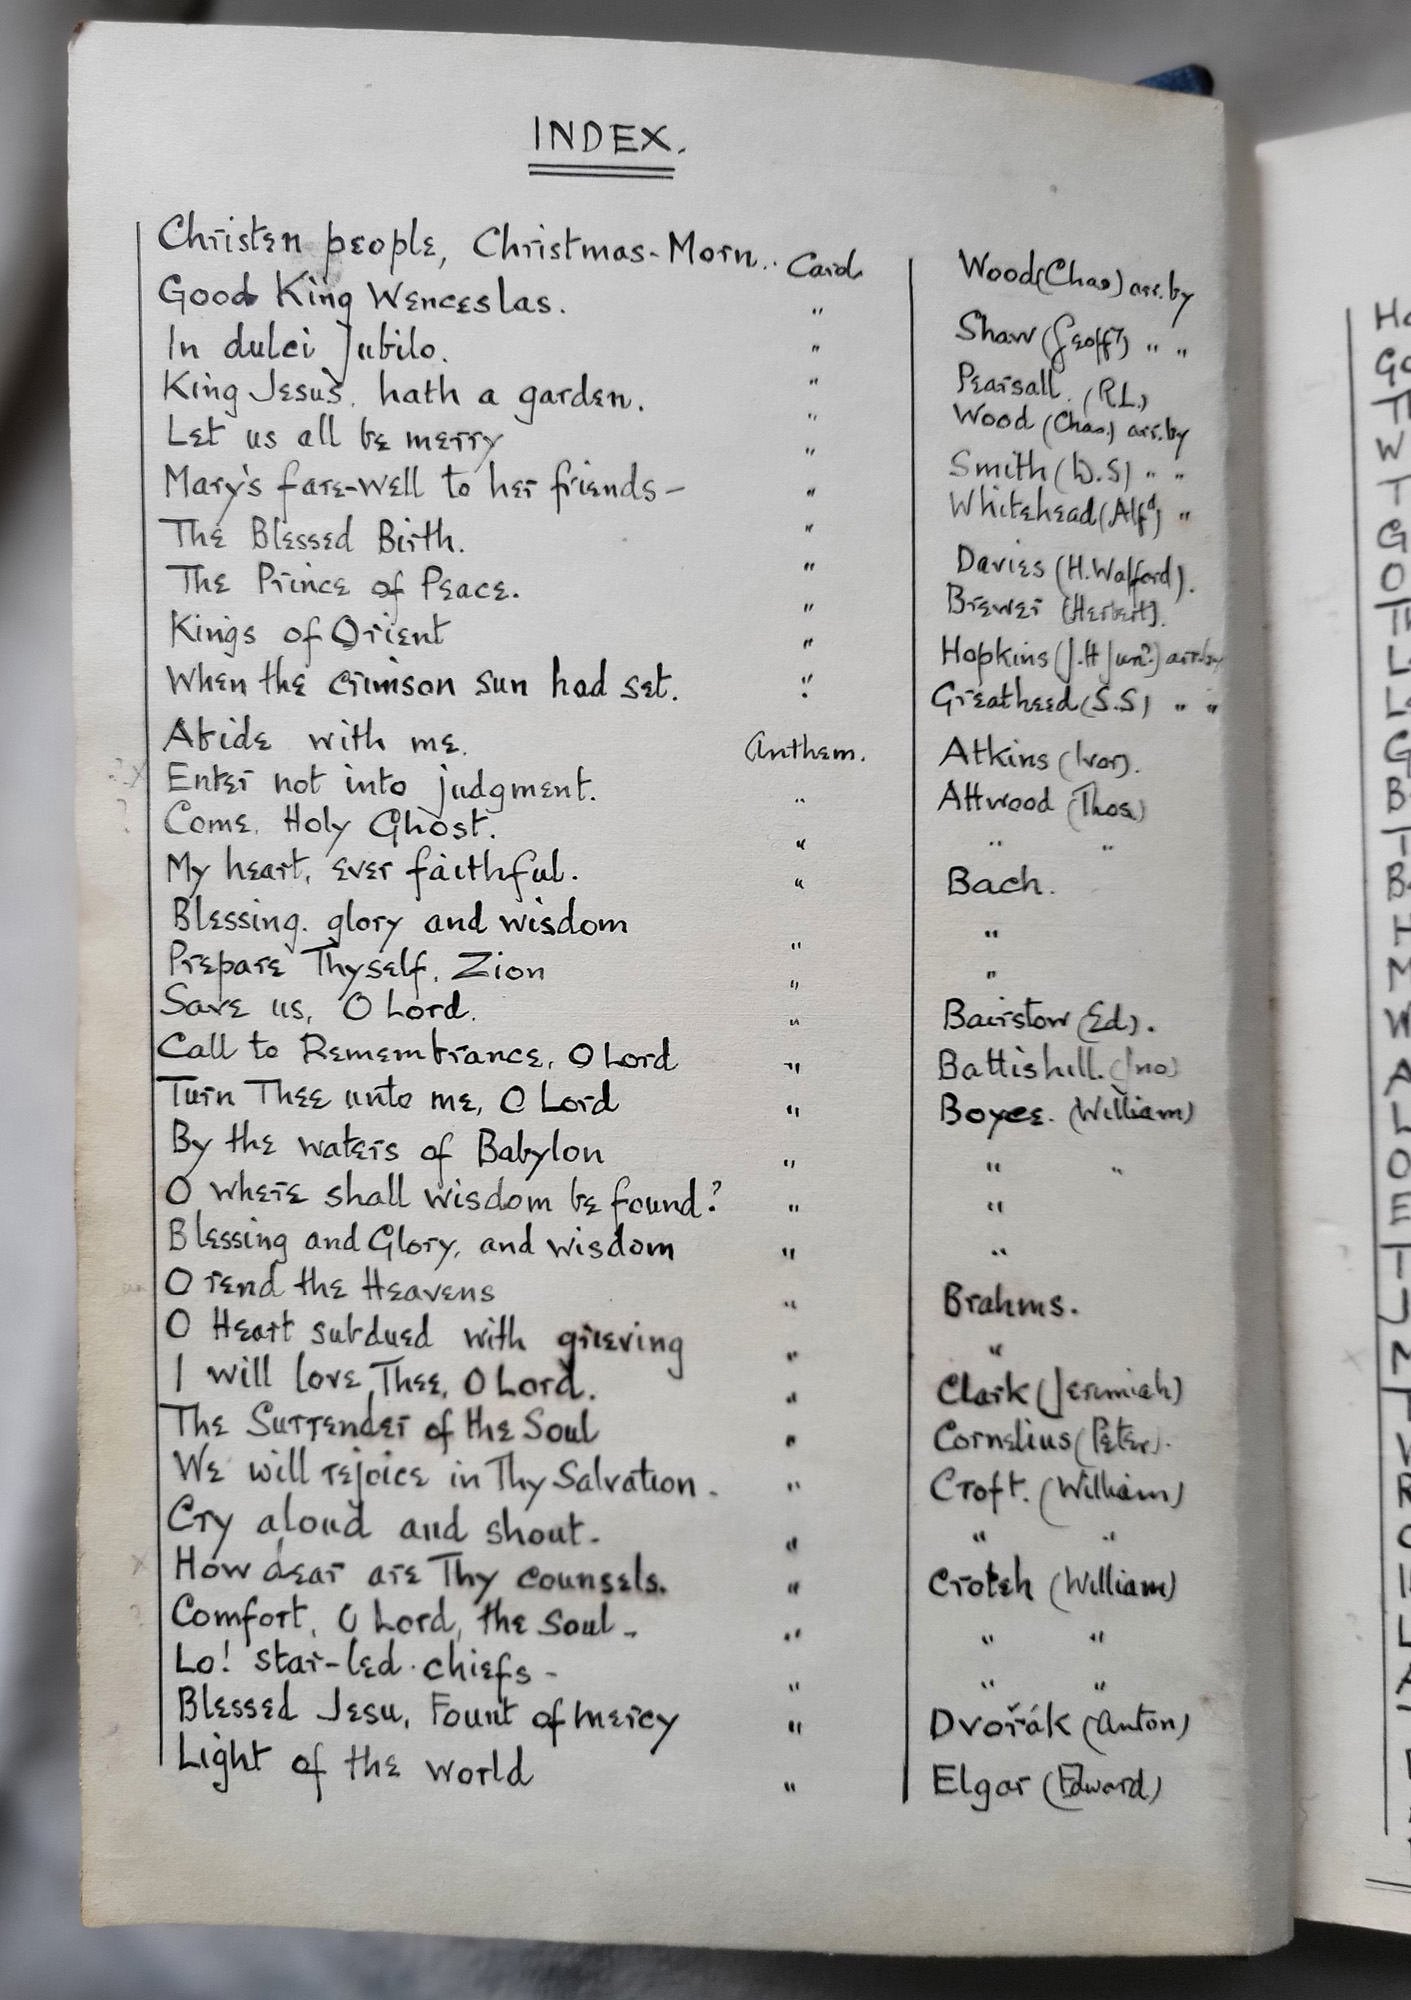 INDEX.
Christen people, Christmas-Morn.. Carol Wood (Chas) arr. by
Good King Wenceslas. " Shaw (Geoffy) " "
In dulci Jubilo. " Pearsall. (R.L.)
King Jesus, hath a garden. " Wood (Chas.) arr. by
Let us all be merry " Smith (D.S) " "
Mary's fare-well to her friends - " Whitehead (Alfd) "
The Blessed Birth. " Davies (H. Walford).
The Prince of Peace. " Brewer (Herbert).
Kings of Orient " Hopkins (J.H Junr.) arr. by
When the crimson sun had set. " Greatheed (S.S) " "
Abide with me. Anthem. Atkins (Ivor).
Enter not into judgment. " Attwood (Thos)
Come, Holy Ghost. " " "
My heart, ever faithful. " Bach.
Blessing, glory and wisdom " "
Prepare Thyself, Zion " "
Save us, O Lord. " Bairstow (Ed).
Call to Remembrance, O Lord " Battishill. (Jno)
Turn Thee unto me, O Lord " Boyce. (William)
By the waters of Babylon " " "
O where shall wisdom be found? " "
Blessing and Glory, and wisdom " "
O rend the Heavens " Brahms.
O Heart subdued with grieving " "
I will love Thee, O Lord. " Clark (Jeremiah)
The Surrender of the Soul " Cornelius (Peter).
We will rejoice in Thy Salvation - " Croft. (William)
Cry aloud and shout - " " "
How dear are Thy counsels. " Crotch (William)
Comfort, O Lord, the Soul - " " "
Lo! star-led chiefs - " " "
Blessed Jesu, Fount of mercy " Dvořák (Anton)
Light of the world " Elgar (Edward)